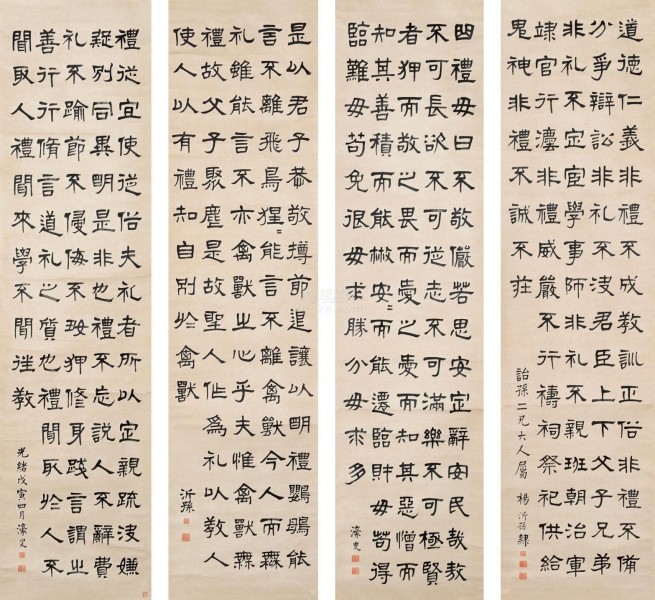 道德仁義非禮不成教訓正俗非禮不備
分爭辯訟非礼不決君臣上下父子兄弟
非礼不定宦學事師非礼不親班朝治軍
䇐官行灋非禮威嚴不行禱祠祭祀供給
鬼神非禮不誠不莊
詒孫二兄大人屬 楊沂孫隸
曲禮毋曰不敬儼若思安定辭安民哉敖
不可長欲不可從志不可滿樂不可極賢
者狎而敬之畏而愛之愛而知其惡憎而
知其善積而能散安〻而能遷臨財毋苟得
臨難毋苟免很毋求勝分毋求多
濠叟
是以君子恭敬撙節退讓以明禮鸚鵡能
言不離飛鳥猩〻能言不離禽獸今人而無
礼雖能言不亦禽獸之心乎夫惟禽獸無
禮故父子聚麀是故聖人作為礼以教人
使人以有禮知自別於禽獸
沂孫
禮從宜使從俗夫礼者所以定親疏決嫌
疑別同異明是非也禮不忘說人不辭費
礼不踰節不侵侮不好狎修身踐言謂之
善行行脩言道礼之質也禮聞取於人不
聞取人禮聞來學不聞往教
光緒戊寅四月濠叟